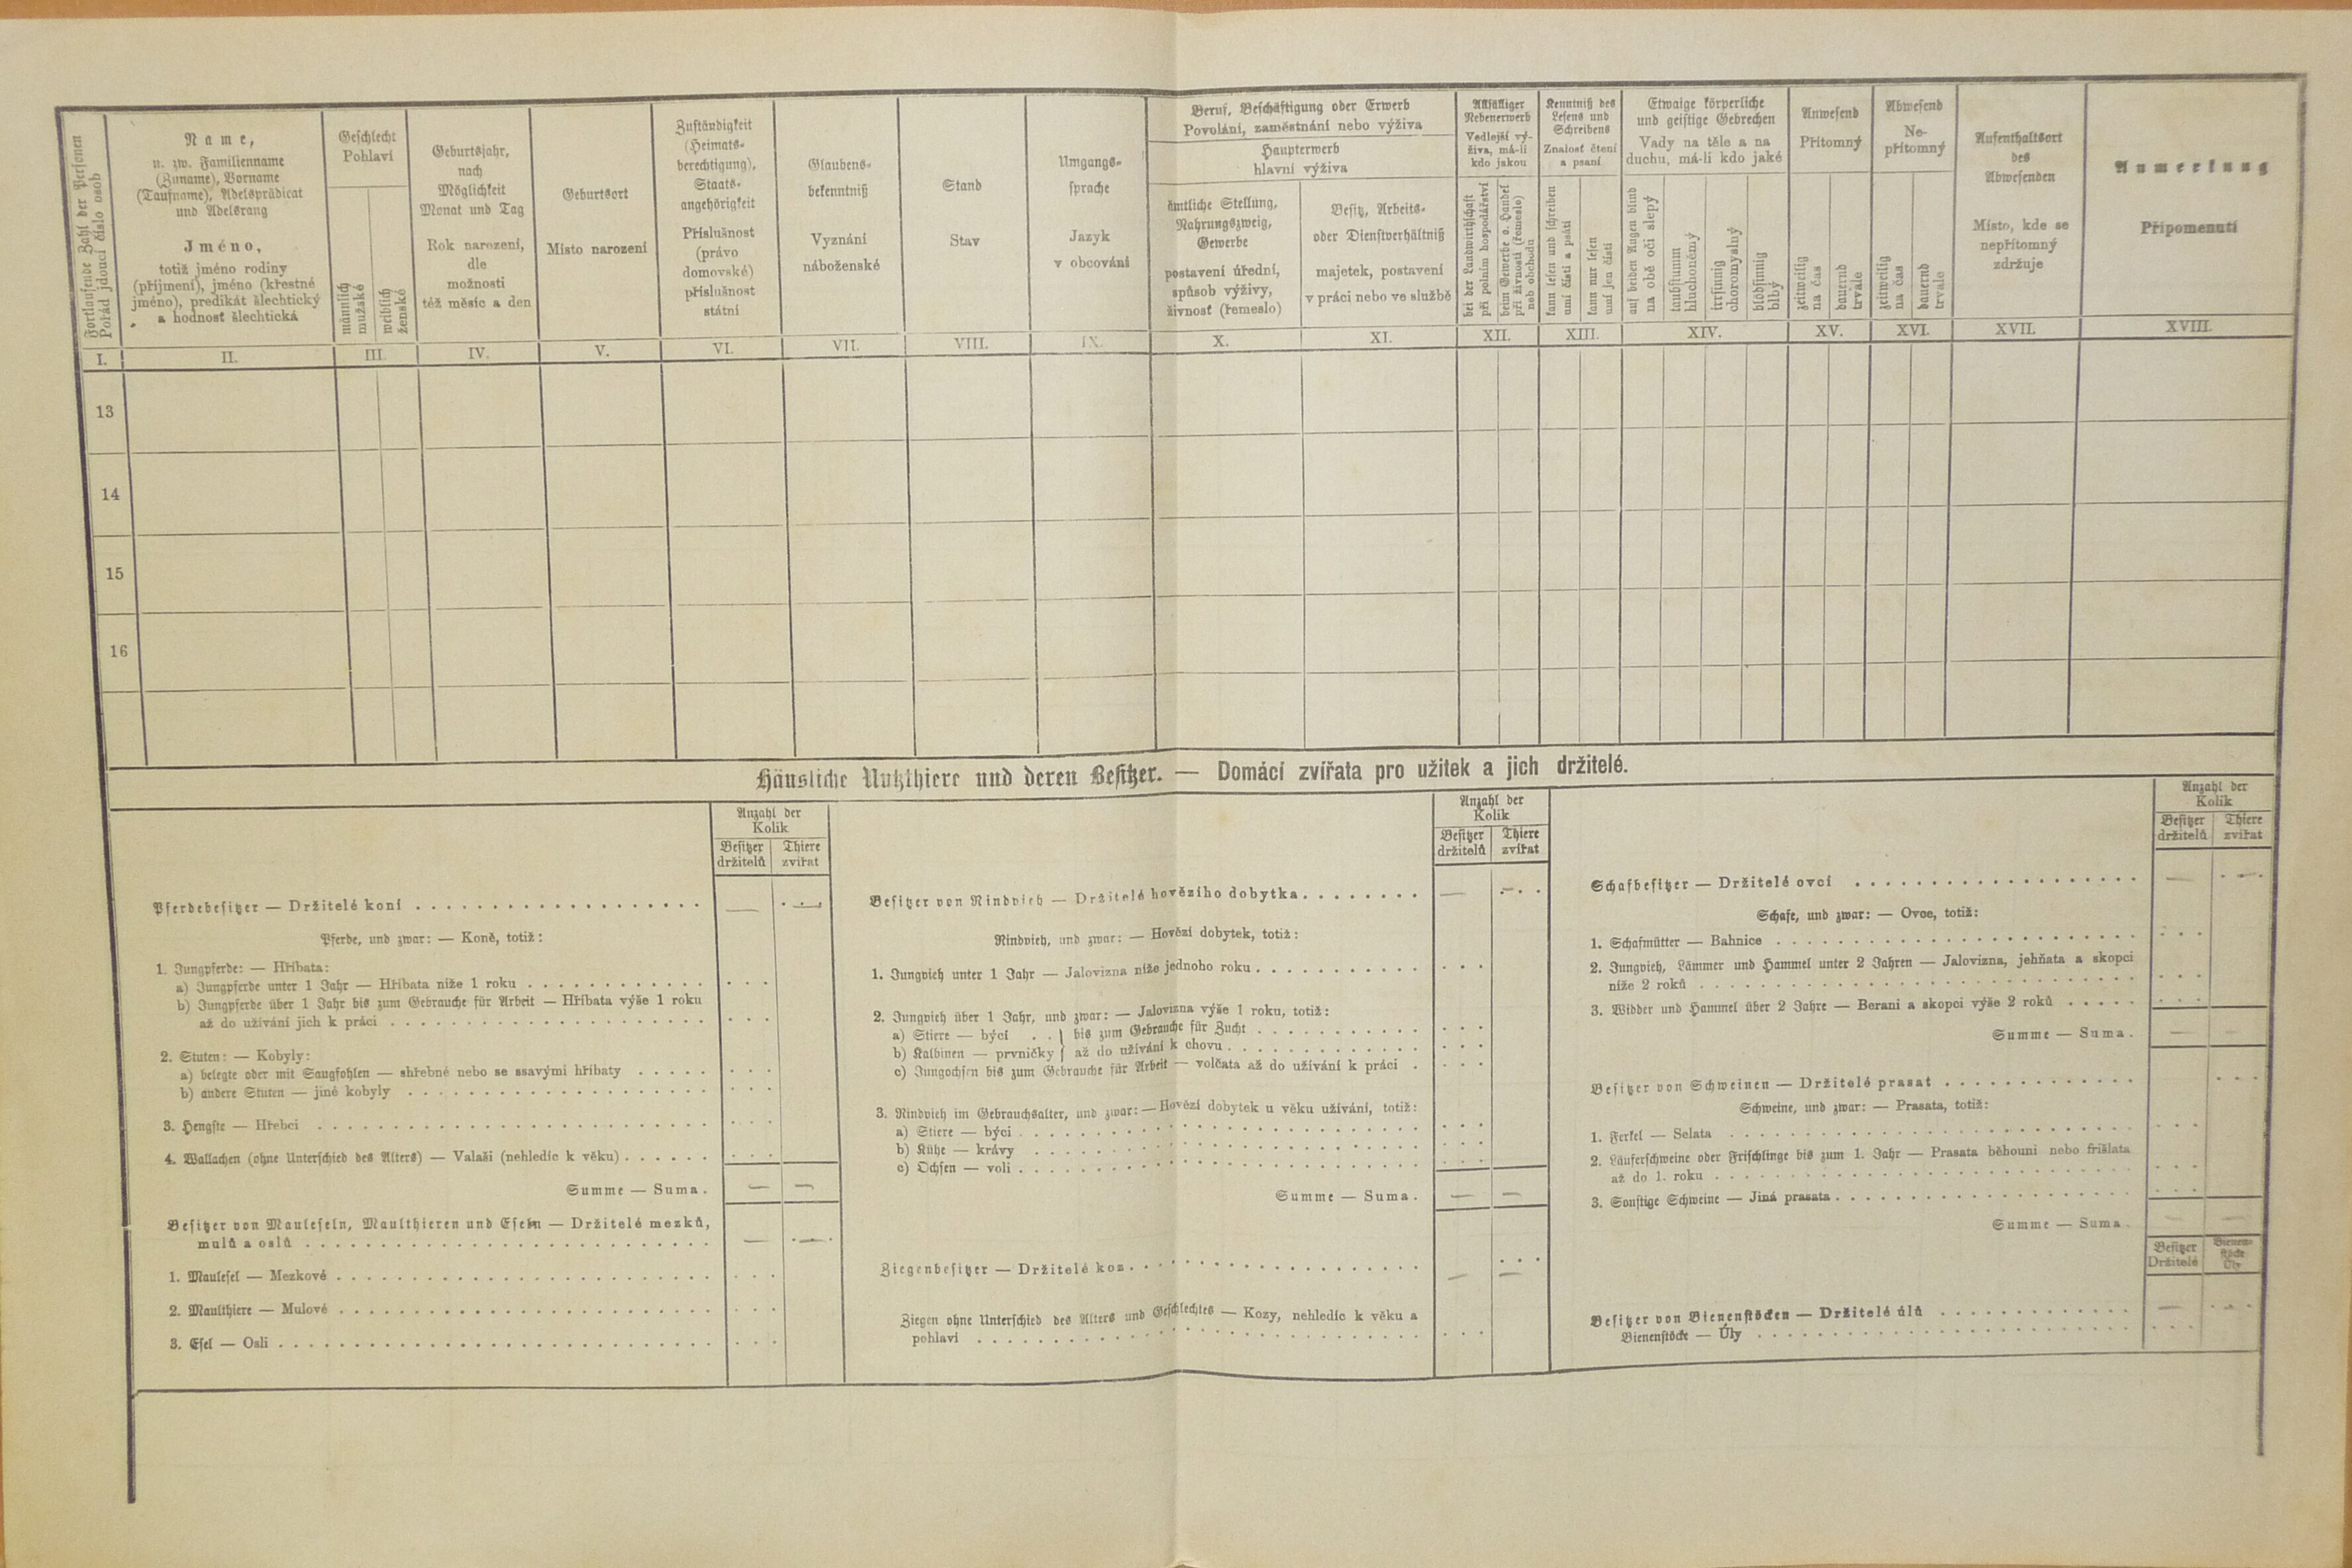 Fortlaufende Zahl der Personen
Pořád jdoucí číslo osob
Name,
u. zw. Familienname
(Zuname), Vorname
(Taufname), Adelsprädicat
und Adelsrang
Jméno,
totiž jméno rodiny
(příjmení), jméno (křestné
jméno), predikát šlechtický
a hodnosť šlechtická
Geschlecht
Pohlaví
männlich
mužské
weiblich
ženské
Geburtsjahr,
nach
Möglichkeit
Monat und Tag
Rok narození,
dle
možnosti
též měsíc a den
Geburtsort
Místo narození
Zuständigkeit
(Heimats-
berechtigung),
Staats-
angehörigkeit
Příslušnost
(právo
domovské)
příslušnost
státní
Glaubens-
bekenntniß
Vyznání
náboženské
Stand
Stav
Umgangs-
sprache
Jazyk
v obcování
Beruf, Beschäftigung oder Erwerb
Povolání, zaměstnání nebo výživa
Haupterwerb
hlavní výživa
ämtliche Stellung,
Nahrungszweig,
Gewerbe
postavení úřední,
spůsob výživy,
živnosť (řemeslo)
Besitz, Arbeits-
oder Dienstverhältniß
majetek, postavení
v práci nebo ve službě
Allfälliger
Nebenerwerb
Vedlejší vý-
živa, má-li
kdo jakou
bei der Landwirthschaft
při polním hospodářství
beim Gewerbe o. Handel
při živnosti (řemesle)
neb obchodu
Kenntniß des
Lesens und
Schreibens
Znalosť čtení
a psaní
kann lesen und schreiben
umí čísti a psáti
kann nur lesen
umí jen čísti
Etwaige körperliche
und geistige Gebrechen
Vady na těle a na
duchu, má-li kdo jaké
auf beiden Augen blind
na obě oči slepý
taubstumm
hluchoněmý
irrsinnig
choromyslný
blödsinnig
blbý
Anwesend
Přítomný
zeitweilig
na čas
dauernd
trvale
Abwesend
Ne-
přítomný
zeitweilig
na čas
dauernd
trvale
Aufenthaltsort
des
Abwesenden
Místo, kde se
nepřítomný
zdržuje
Anmerkung
Připomenutí
I. II. III. IV. V. VI. VII. VIII. IX. X. XI. XII. XIII. XIV. XV. XVI. XVII. XVIII.
13
14
15
16
Häusliche Nutzthiere und deren Besitzer. — Domácí zvířata pro užitek a jich držitelé.
Anzahl der
Kolik
Besitzer Thiere
držitelů zvířat
Pferdebesitzer — Držitelé koní . . . . . — —
Pferde, und zwar: — Koně, totiž:
1. Jungpferde: — Hříbata:
a) Jungpferde unter 1 Jahr — Hříbata níže 1 roku . . . . .
b) Jungpferde über 1 Jahr bis zum Gebrauche für Arbeit — Hříbata výše 1 roku
až do užívání jich k práci . . . . .
2. Stuten: — Kobyly:
a) belegte oder mit Saugfohlen — shřebné nebo se ssavými hříbaty . . . . .
b) andere Stuten — jiné kobyly . . . . .
3. Hengste — Hřebci . . . . .
4. Wallachen (ohne Unterschied des Alters) — Valaši (nehledíc k věku) . . . . .
Summe — Suma. — —
Besitzer von Mauleseln, Maulthieren und Eseln — Držitelé mezků,
mulů a oslů . . . . . — —
1. Maulesel — Mezkové . . . . .
2. Maulthiere — Mulové . . . . .
3. Esel — Osli . . . . .
Anzahl der
Kolik
Besitzer Thiere
držitelů zvířat
Besitzer von Rindvieh — Držitelé hovězího dobytka . . . . . — —
Rindvieh, und zwar: — Hovězí dobytek, totiž:
1. Jungvieh unter 1 Jahr — Jalovizna níže jednoho roku . . . . .
2. Jungvieh über 1 Jahr, und zwar: — Jalovizna výše 1 roku, totiž:
a) Stiere — býci . . } bis zum Gebrauche für Zucht . . . . .
b) Kalbinen — prvničky } až do užívání k chovu . . . . .
c) Jungochsen bis zum Gebrauche für Arbeit — volčata až do užívání k práci .
3. Rindvieh im Gebrauchsalter, und zwar: — Hovězí dobytek u věku užívání, totiž:
a) Stiere — býci . . . . .
b) Kühe — krávy . . . . .
c) Ochsen — voli . . . . .
Summe — Suma. — —
Ziegenbesitzer — Držitelé koz . . . . . — —
Ziegen ohne Unterschied des Alters und Geschlechtes — Kozy, nehledíc k věku a
pohlaví . . . . .
Anzahl der
Kolik
Besitzer Thiere
držitelů zvířat
Schafbesitzer — Držitelé ovcí . . . . . — —
Schafe, und zwar: — Ovce, totiž:
1. Schafmütter — Bahnice . . . . .
2. Jungvieh, Lämmer und Hammel unter 2 Jahren — Jalovizna, jehňata a skopci
níže 2 roků . . . . .
3. Widder und Hammel über 2 Jahre — Berani a skopci výše 2 roků . . . . .
Summe — Suma. — —
Besitzer von Schweinen — Držitelé prasat . . . . .
Schweine, und zwar: — Prasata, totiž:
1. Ferkel — Selata . . . . .
2. Läuferschweine oder Frischlinge bis zum 1. Jahr — Prasata běhouni nebo frišlata
až do 1. roku . . . . .
3. Sonstige Schweine — Jiná prasata . . . . .
Summe — Suma. — —
Besitzer Bienen-
Držitelé stöcke
Úly
Besitzer von Bienenstöcken — Držitelé úlů . . . . . — —
Bienenstöcke — Úly . . . . .